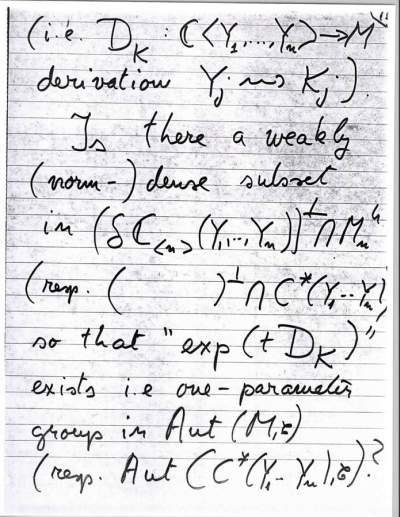 (i.e. D_K : ℂ⟨Y_1,...,Y_n⟩ → M
derivation Y_j ⇝ K_j.)
Is there a weakly
(norm-) dense subset
in (δ ℂ_{<n>}(Y_1,...,Y_n))^⊥ ∩ M_n^h
(resp. (        )^⊥ ∩ C*(Y_1...Y_n)
so that "exp(t D_K)"
exists i.e one-parameter
group in Aut (M,τ)
(resp. Aut (C*(Y_1-Y_n),τ)?